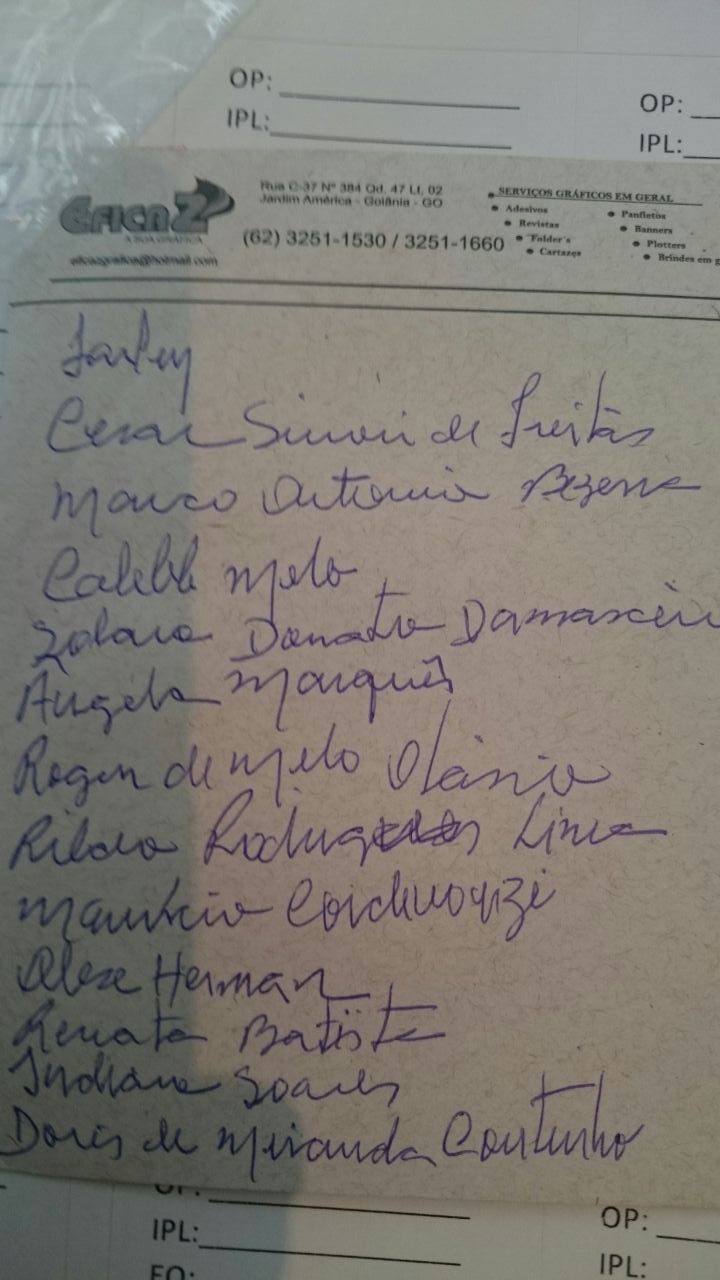 OP:
OP:
IPL:
IPL:
EficaZ
A BOA GRÁFICA
eficazgrafica@hotmail.com
Rua C-37 Nº 384 Qd. 47 Lt. 02
Jardim América - Goiânia - GO
(62) 3251-1530 / 3251-1660
SERVIÇOS GRÁFICOS EM GERAL
Adesivos
Revistas
Folder's
Cartazes
Panfletos
Banners
Plotters
Brindes em g
Cesar Simoni de Freitas
Marco Antonio Bezerra
Calebe Melo
Donato Damasceno
Ângela Marquês
Roger de Melo Otásio
Rildo Rodrigues Lima
Mauricio
Alex Herman
Renata Batista
Indiara Soares
Doris de Miranda Coutinho
OP:
OP:
IPL:
IPL:
EQ: